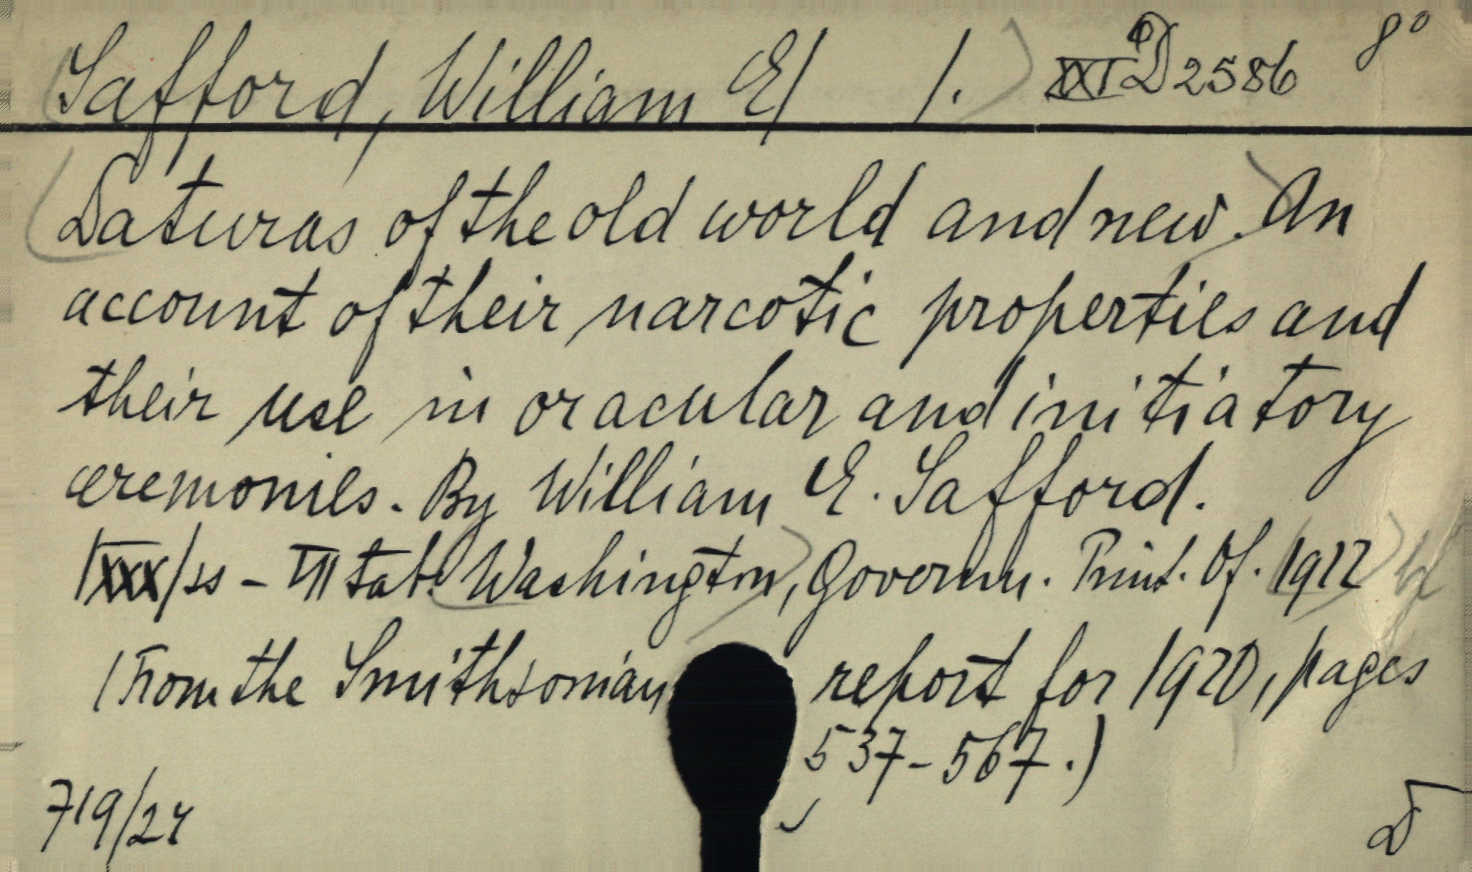 Safford, William E/ 1. XXI D 2586 8°
Daturas of the old world and new. An
account of their narcotic properties and
their use in oracular and initiatory
ceremonies. By William E. Safford.
XXX/ss - III tab. Washington, Governm. Print. Of. 1922
(From the Smithsonian report for 1920, pages
537-567.)
719/24
D